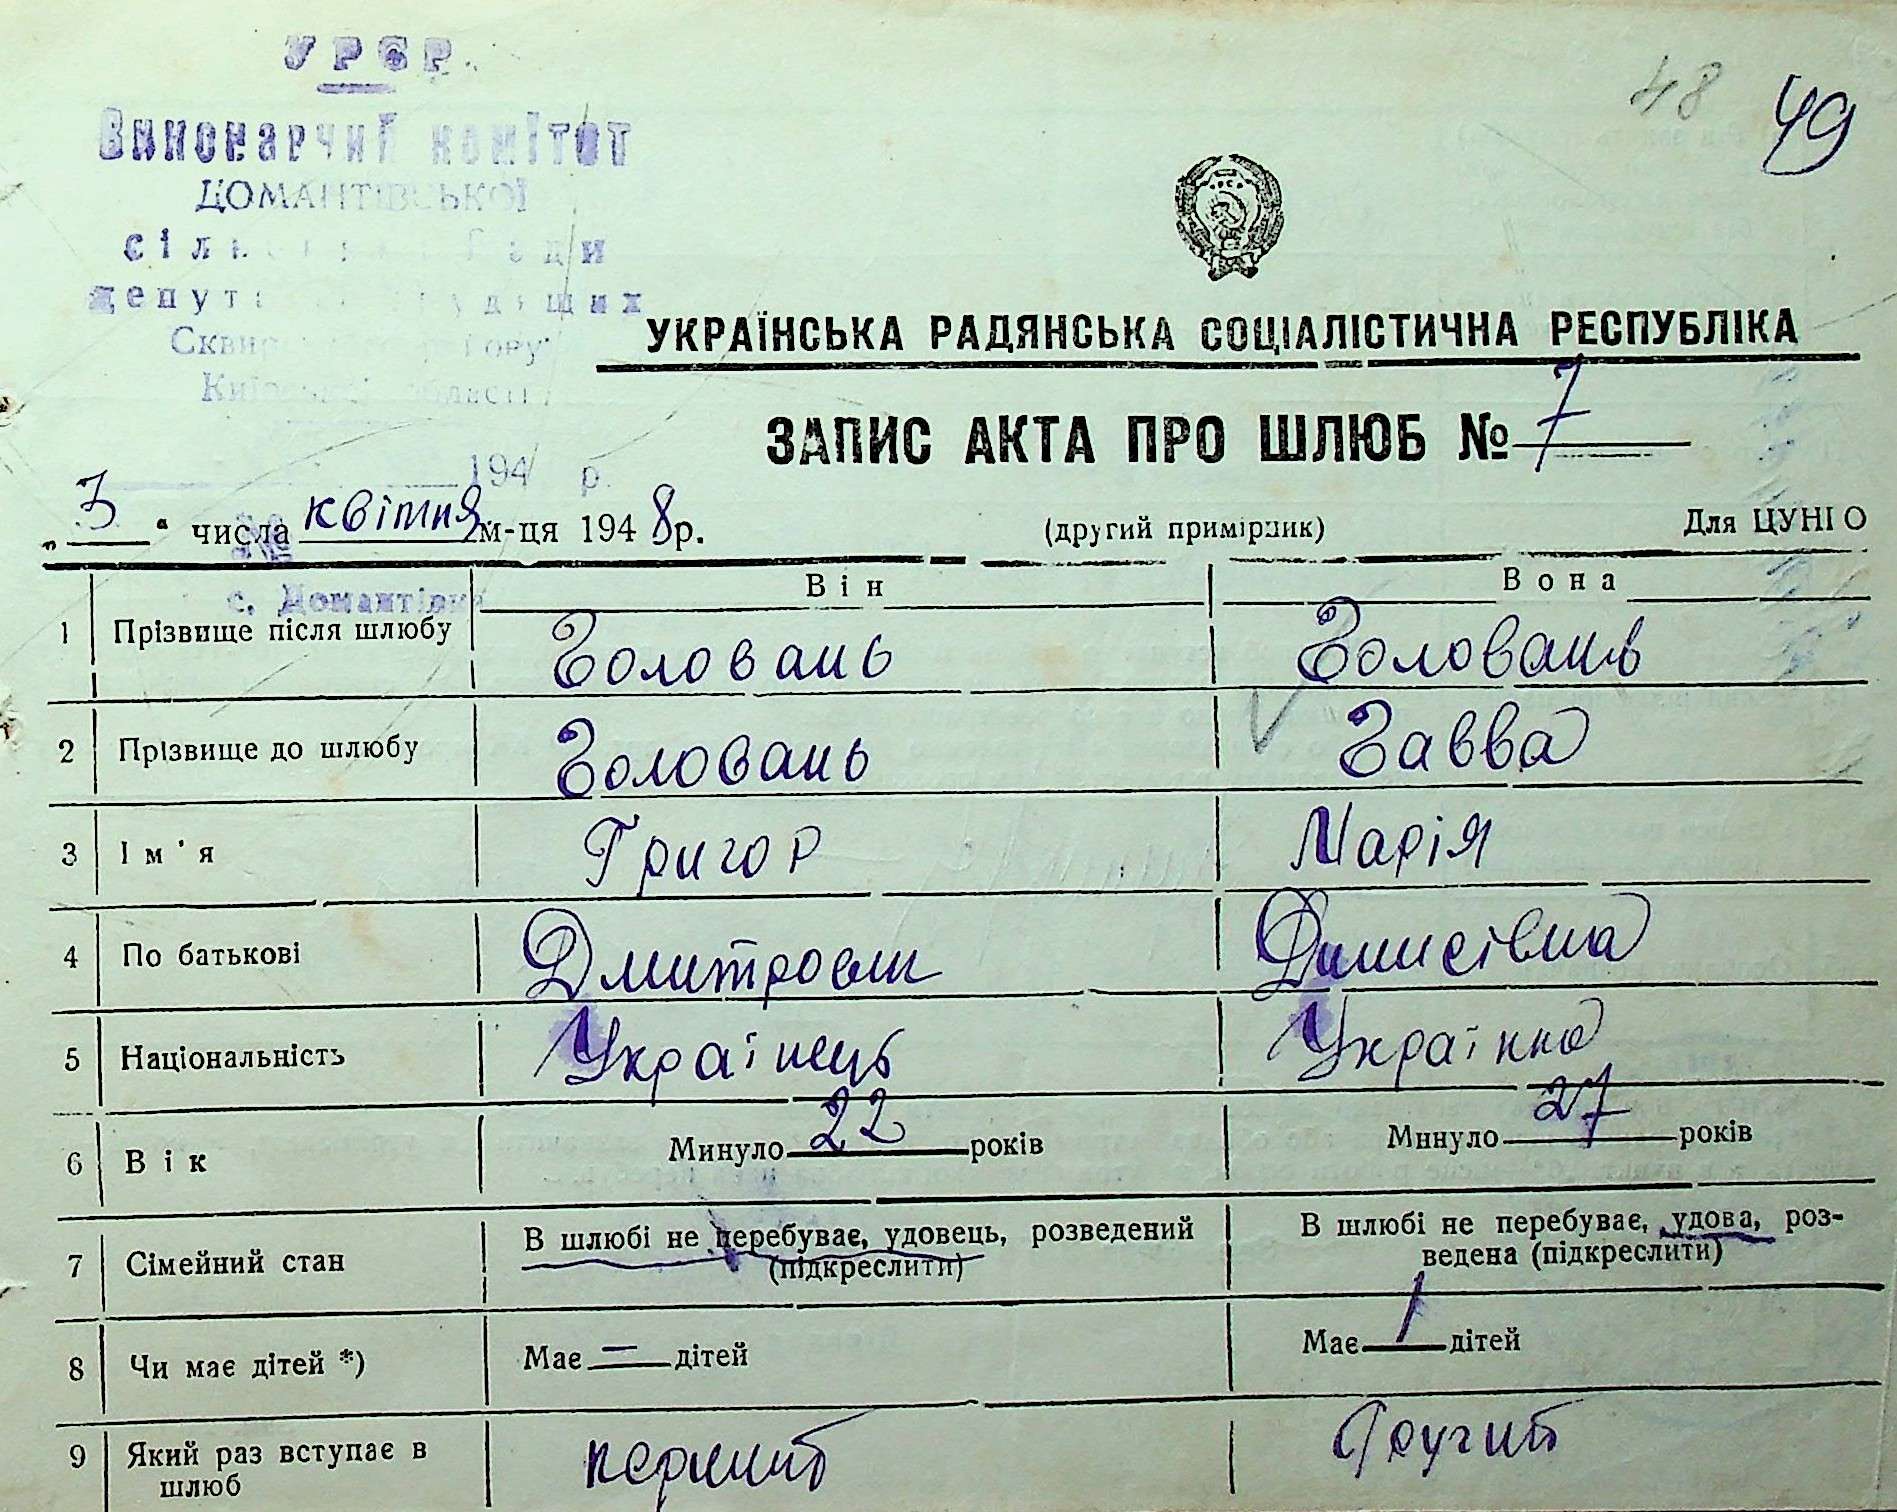 УРСР
Виконавчий комітет
ДОМАНТІВСЬКОЇ
сільської Ради
депутатів трудящих
Сквирського району
Київської області
48 49
УКРАЇНСЬКА РАДЯНСЬКА СОЦІАЛІСТИЧНА РЕСПУБЛІКА
ЗАПИС АКТА ПРО ШЛЮБ № 7
194 р.
„3“ числа квітня м-ця 1948 р. (другий примірник) Для ЦУНГО
№
с. Домантівка
Він Вона
1 Прізвище після шлюбу Головань Головань
2 Прізвище до шлюбу Головань Гавва
3 Ім'я Григор Марія
4 По батькові Дмитрович Динисівна
5 Національність Українець Українка
6 Вік Минуло 22 років Минуло 27 років
7 Сімейний стан В шлюбі не перебуває, удовець, розведений (підкреслити) В шлюбі не перебуває, удова, роз-
ведена (підкреслити)
8 Чи має дітей *) Має — дітей Має 1 дітей
9 Який раз вступає в шлюб перший другий